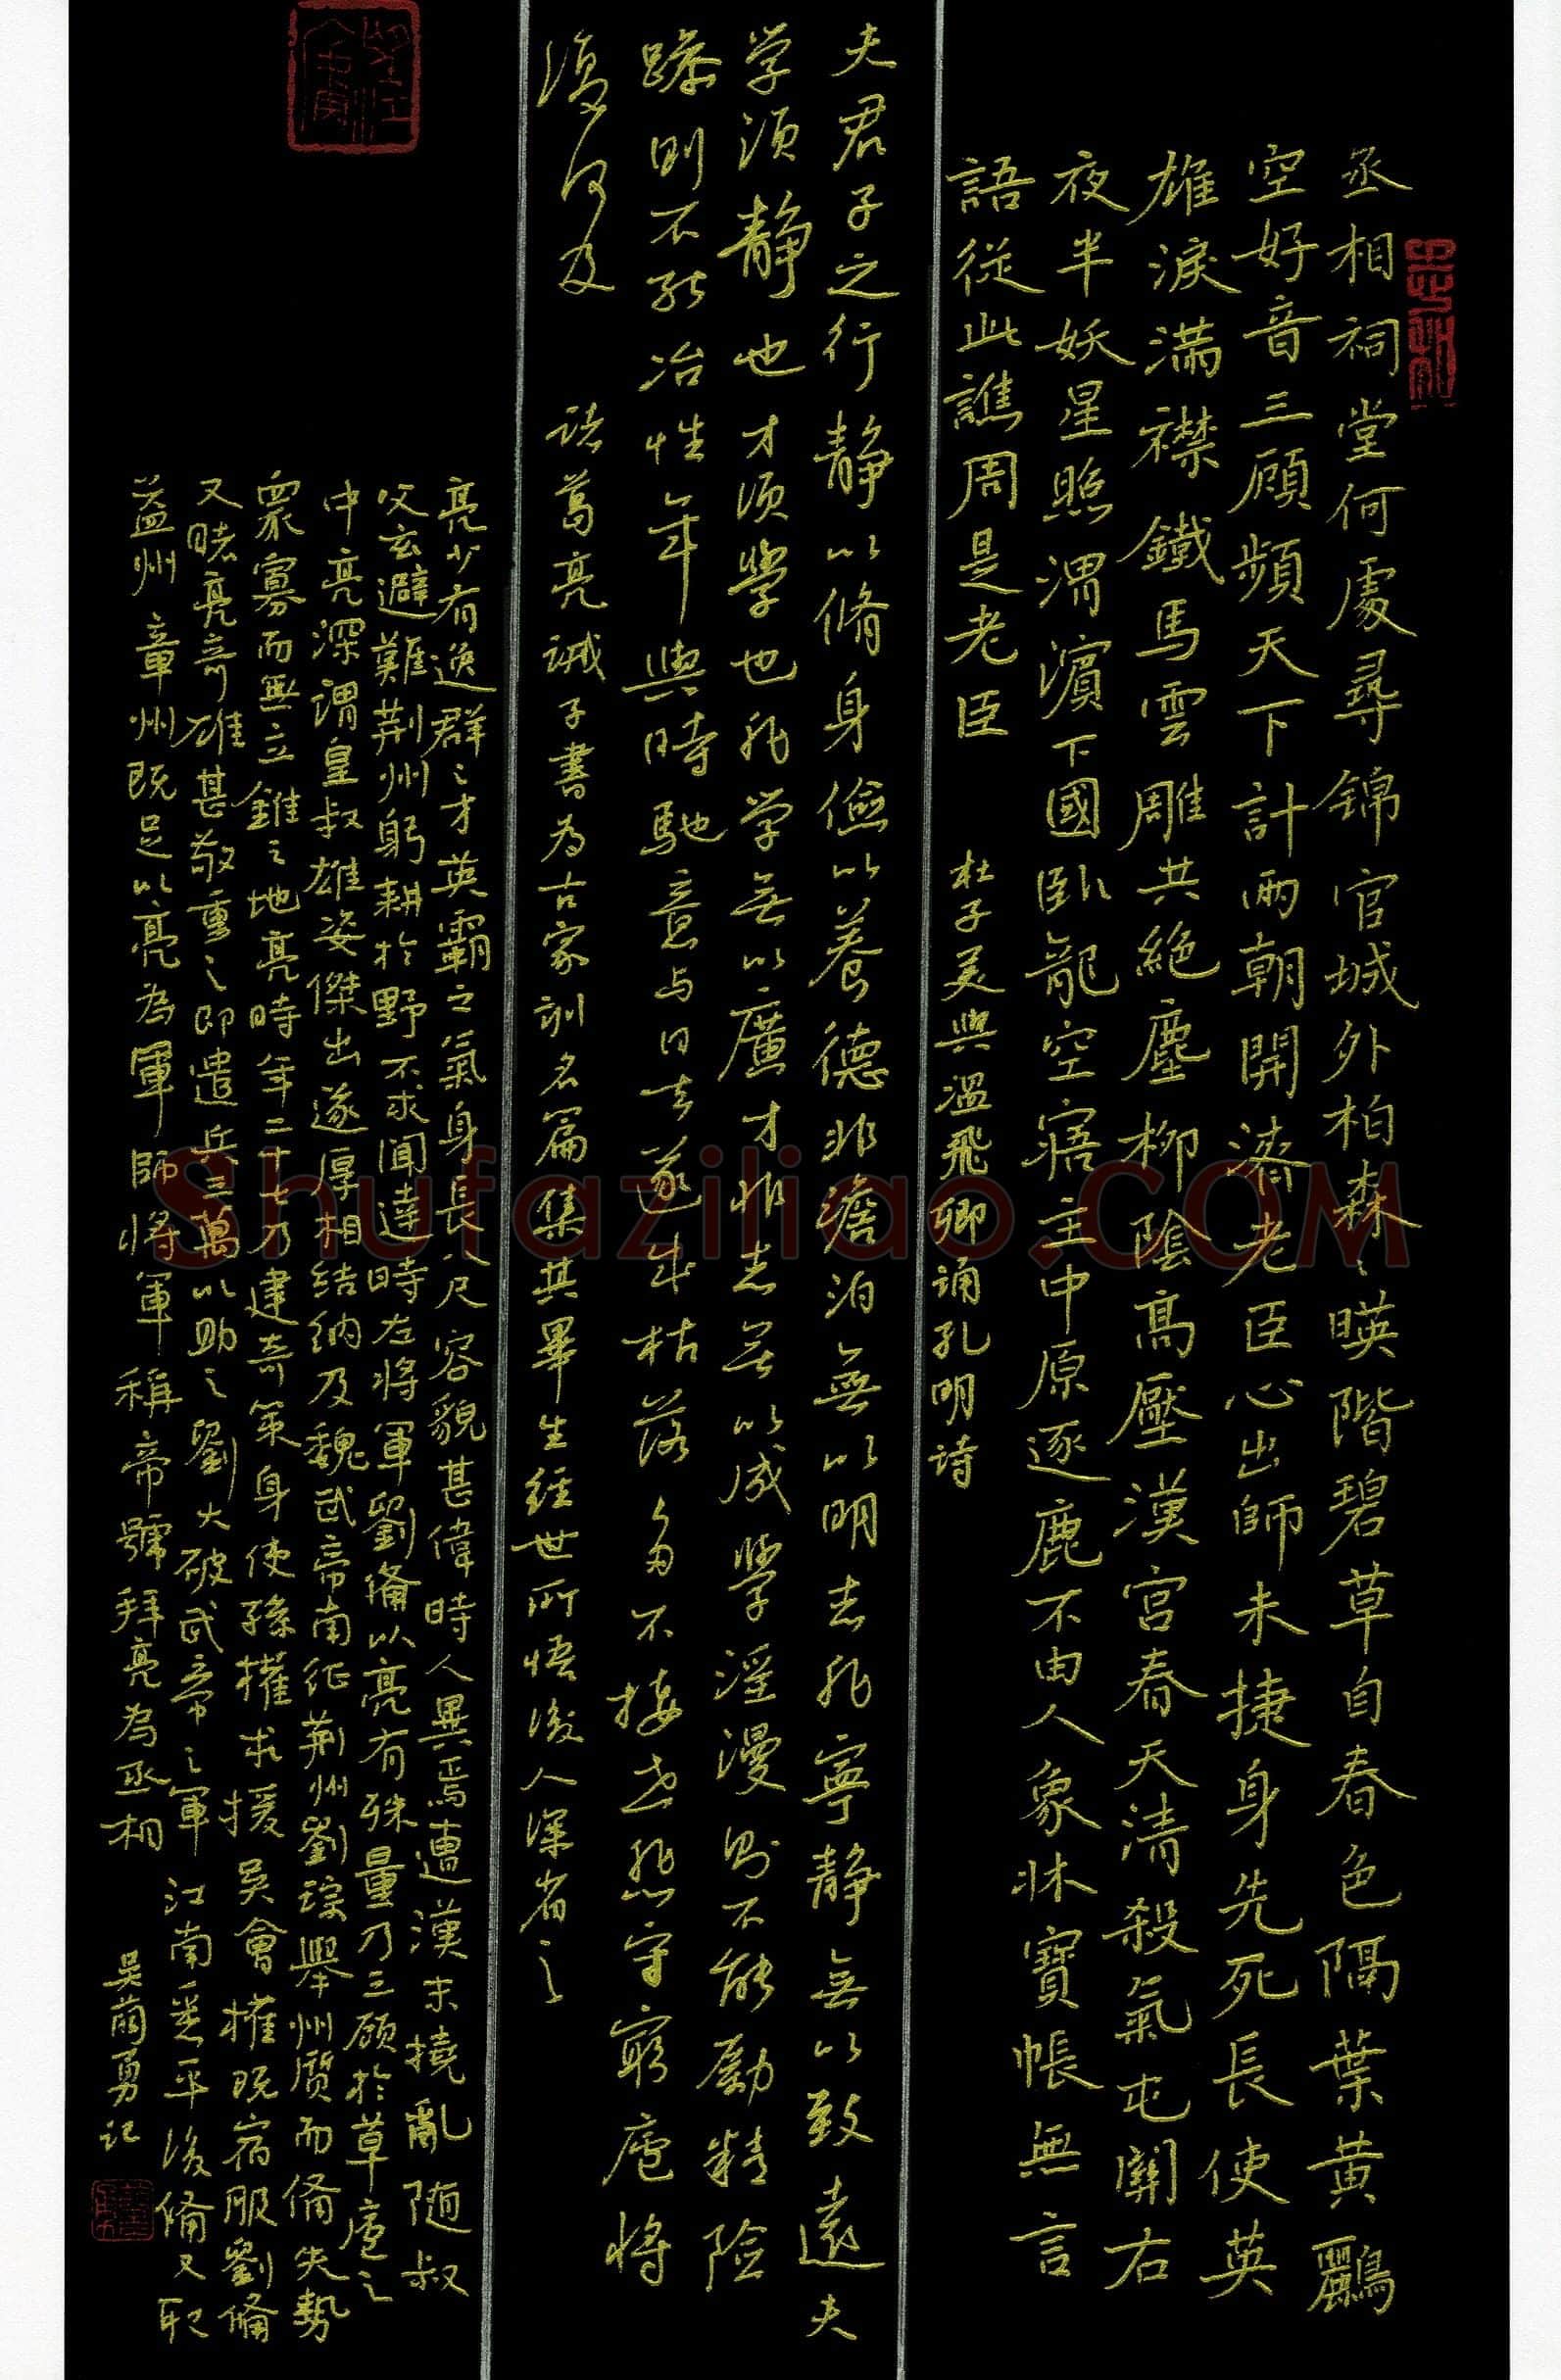 丞相祠堂何處尋錦官城外柏森々暎階碧草自春色隔葉黄鸝
空好音三顾頻天下計兩朝開濟老臣心出師未捷身先死長使英
雄淚满襟鐵馬雲雕共絶塵柳陰髙壓漢宫春天清殺氣屯關右
夜半妖星照渭濵下國卧龍空寤主中原逐鹿不由人象牀寶帳無言
語從此譙周是老臣
杜子美與溫飛卿誦孔明诗
夫君子之行静以脩身儉以養德非澹泊無以明志非寧静無以致遠夫
学須静也才須學也非学無以廣才非志無以成學淫漫則不能勵精險
躁則不能冶性年與時馳意与日去遂成枯落多不接世悲守窮廬将
復何及
諸葛亮诫子書为古家訓名篇集其畢生經世所悟後人深省之
亮少有逸群之才英霸之氣身長八尺容貌甚偉時人異焉遭漢末擾亂随叔
父玄避難荆州躬耕於野不求闻達時左将軍劉備以亮有殊量乃三顾於草廬之
中亮深谓皇叔雄姿傑出遂厚相结纳及魏武帝南征荆州劉琮舉州质而備失勢
衆寡而無立錐之地亮時年二十七乃建奇策身使孫權求援吴會權既宿服劉備
又睹亮奇雄甚敬重之即遣兵三萬以助之劉大破武帝之軍江南悉平後備又取
益州章州既足以亮为軍師将軍稱帝號拜亮为丞相
吴 勇记
Shufaziliao.COM